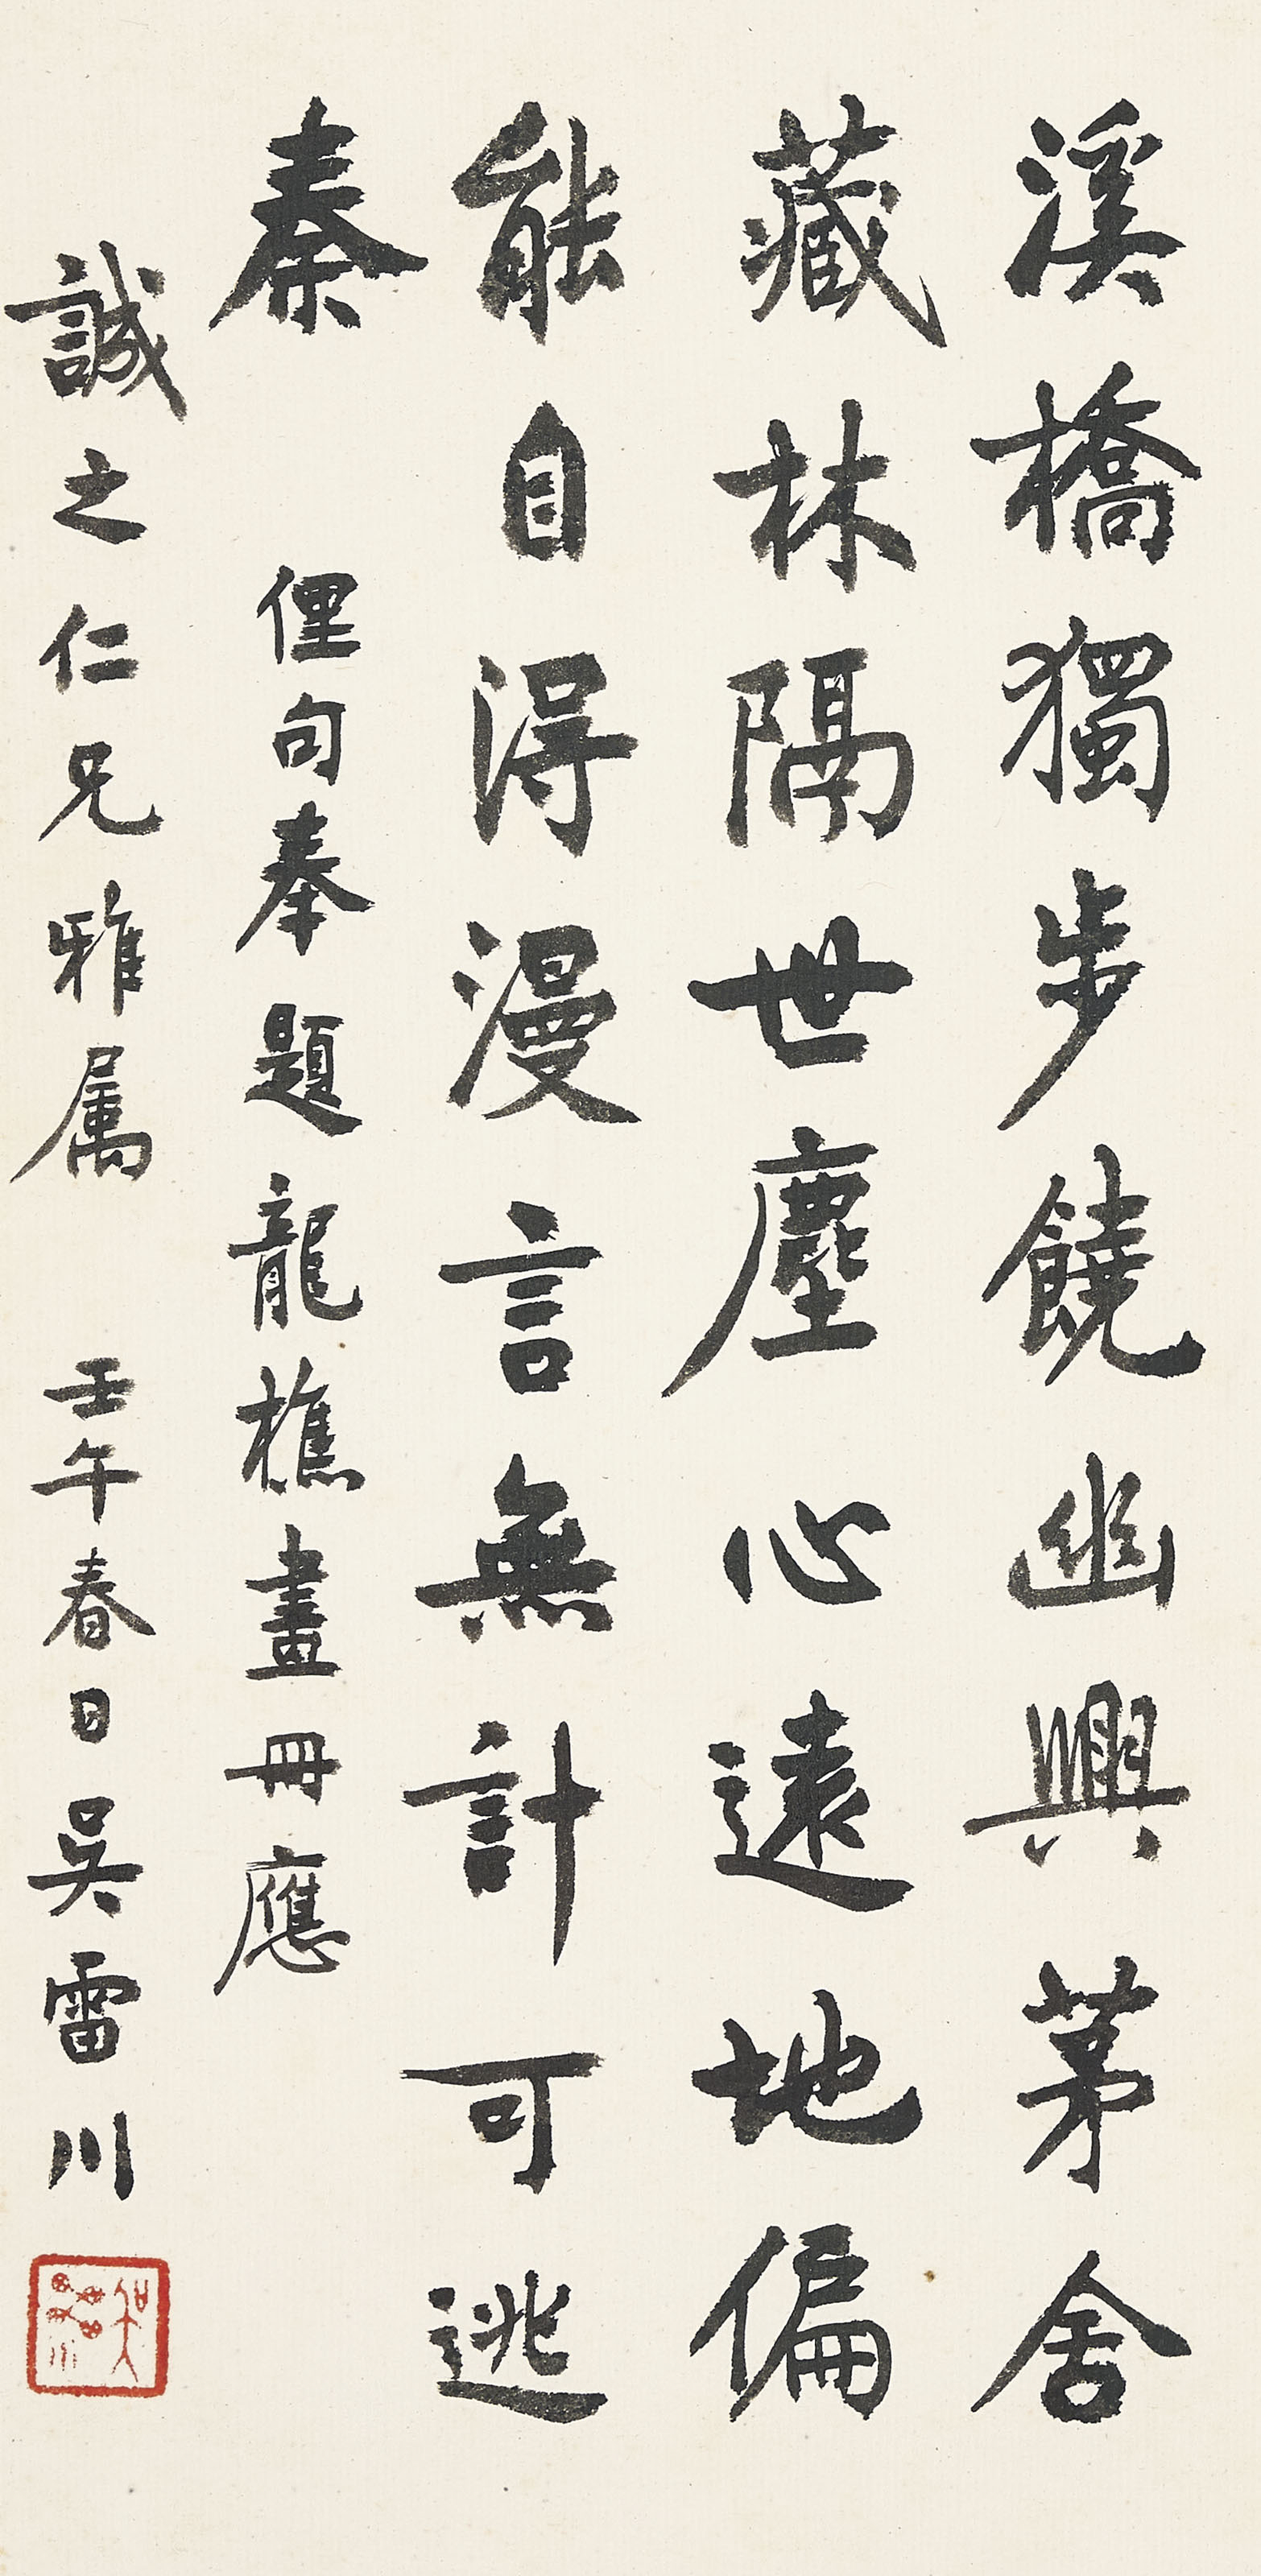 溪橋獨步饒幽興茅舍
藏林隔世塵心遠地偏
能自得漫言無計可逃
秦　俚句奉題龍樵畫冊應
誠之仁兄雅属　壬午春日吳雷川
吳雷川